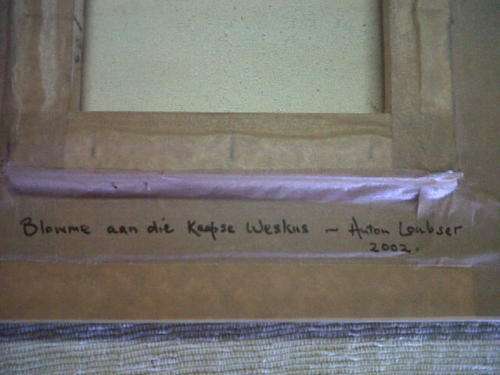 Blomme aan die Kaapse Weskus - Anton Loubser
2002.